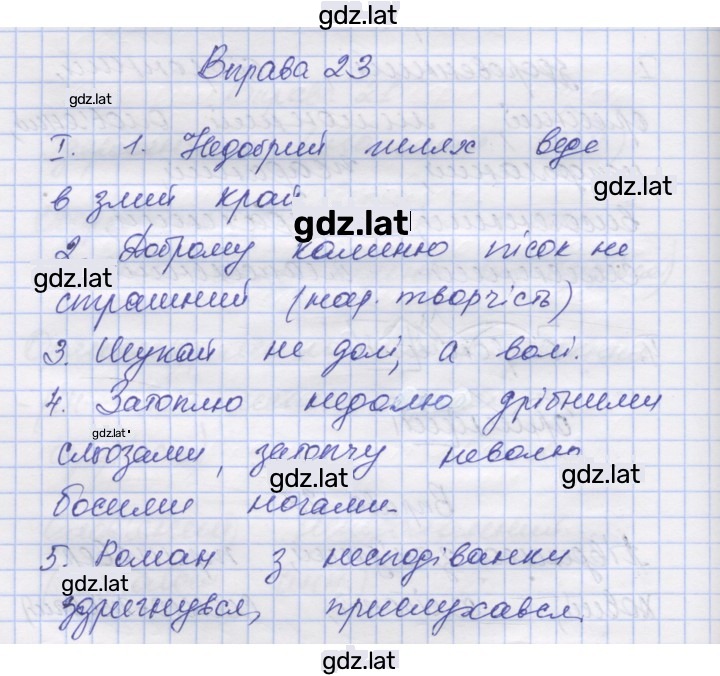 gdz.lat
Вправа 23
gdz.lat
І. 1. Недобрий шлях веде
gdz.lat
в злий край
gdz.lat
2. Доброму камінню пісок не
gdz.lat
страшний (нар. творчість)
3. Шукай не долі, а волі.
4. Затоплю недолю дрібними
gdz.lat
сльозами, затопчу неволю
gdz.lat gdz.lat
босими ногами.
5. Роман з несподіванки
gdz.lat
здригнувся, прислухався,
gdz.lat